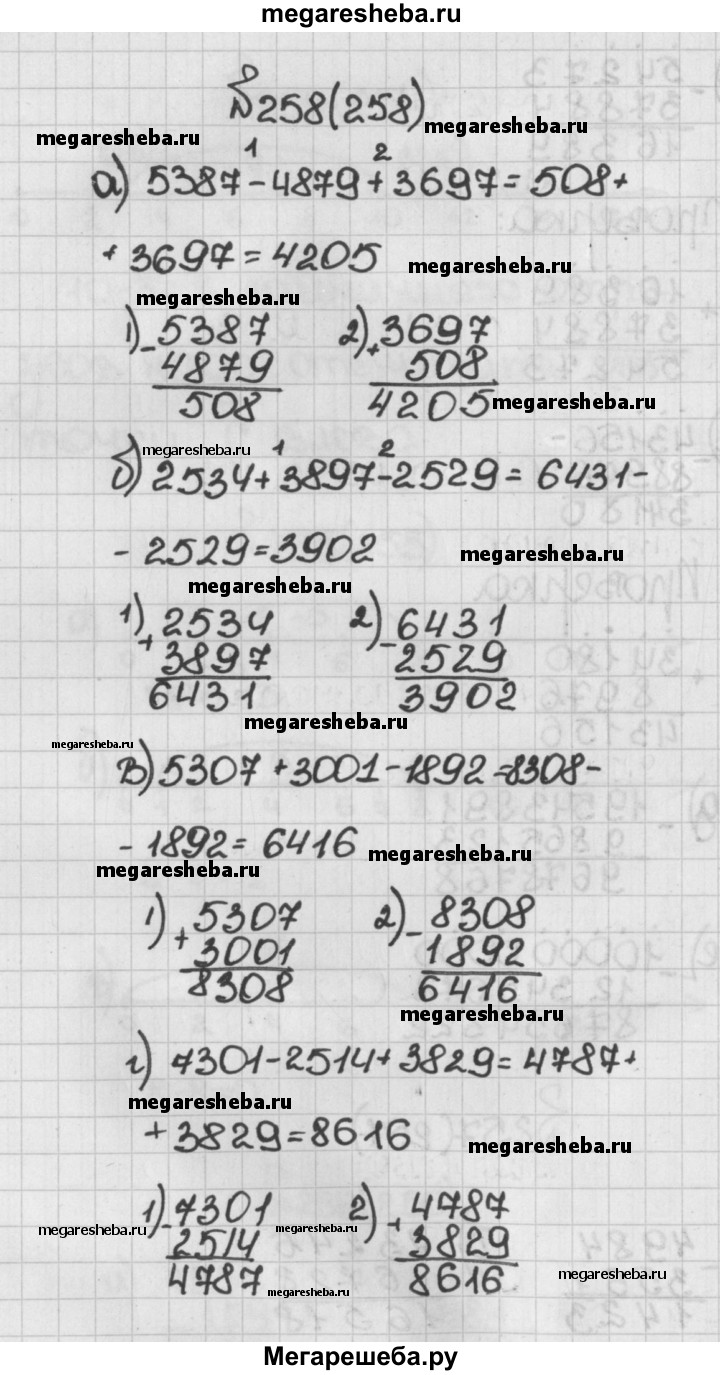 megaresheba.ru
№258(258)
megaresheba.ru
megaresheba.ru
1 2
а) 5387-4879+3697=508+
+3697=4205
megaresheba.ru
megaresheba.ru
1) 2)
- 5387 + 3697
4879 508
508 4205
megaresheba.ru
megaresheba.ru
1 2
б) 2534+3897-2529=6431-
-2529=3902
megaresheba.ru
megaresheba.ru
1) + 2534 2) - 6431
3897 2529
6431 3902
megaresheba.ru
megaresheba.ru
в) 5307+3001-1892=8308-
-1892=6416
megaresheba.ru
megaresheba.ru
1) + 5307 2) - 8308
3001 1892
8308 6416
megaresheba.ru
г) 7301-2514+3829=4787+
megaresheba.ru
+3829=8616
megaresheba.ru
1) - 7301 2) + 4787
megaresheba.ru
megaresheba.ru
2514 3829
4787 8616
megaresheba.ru
megaresheba.ru
Мегарешеба.ру